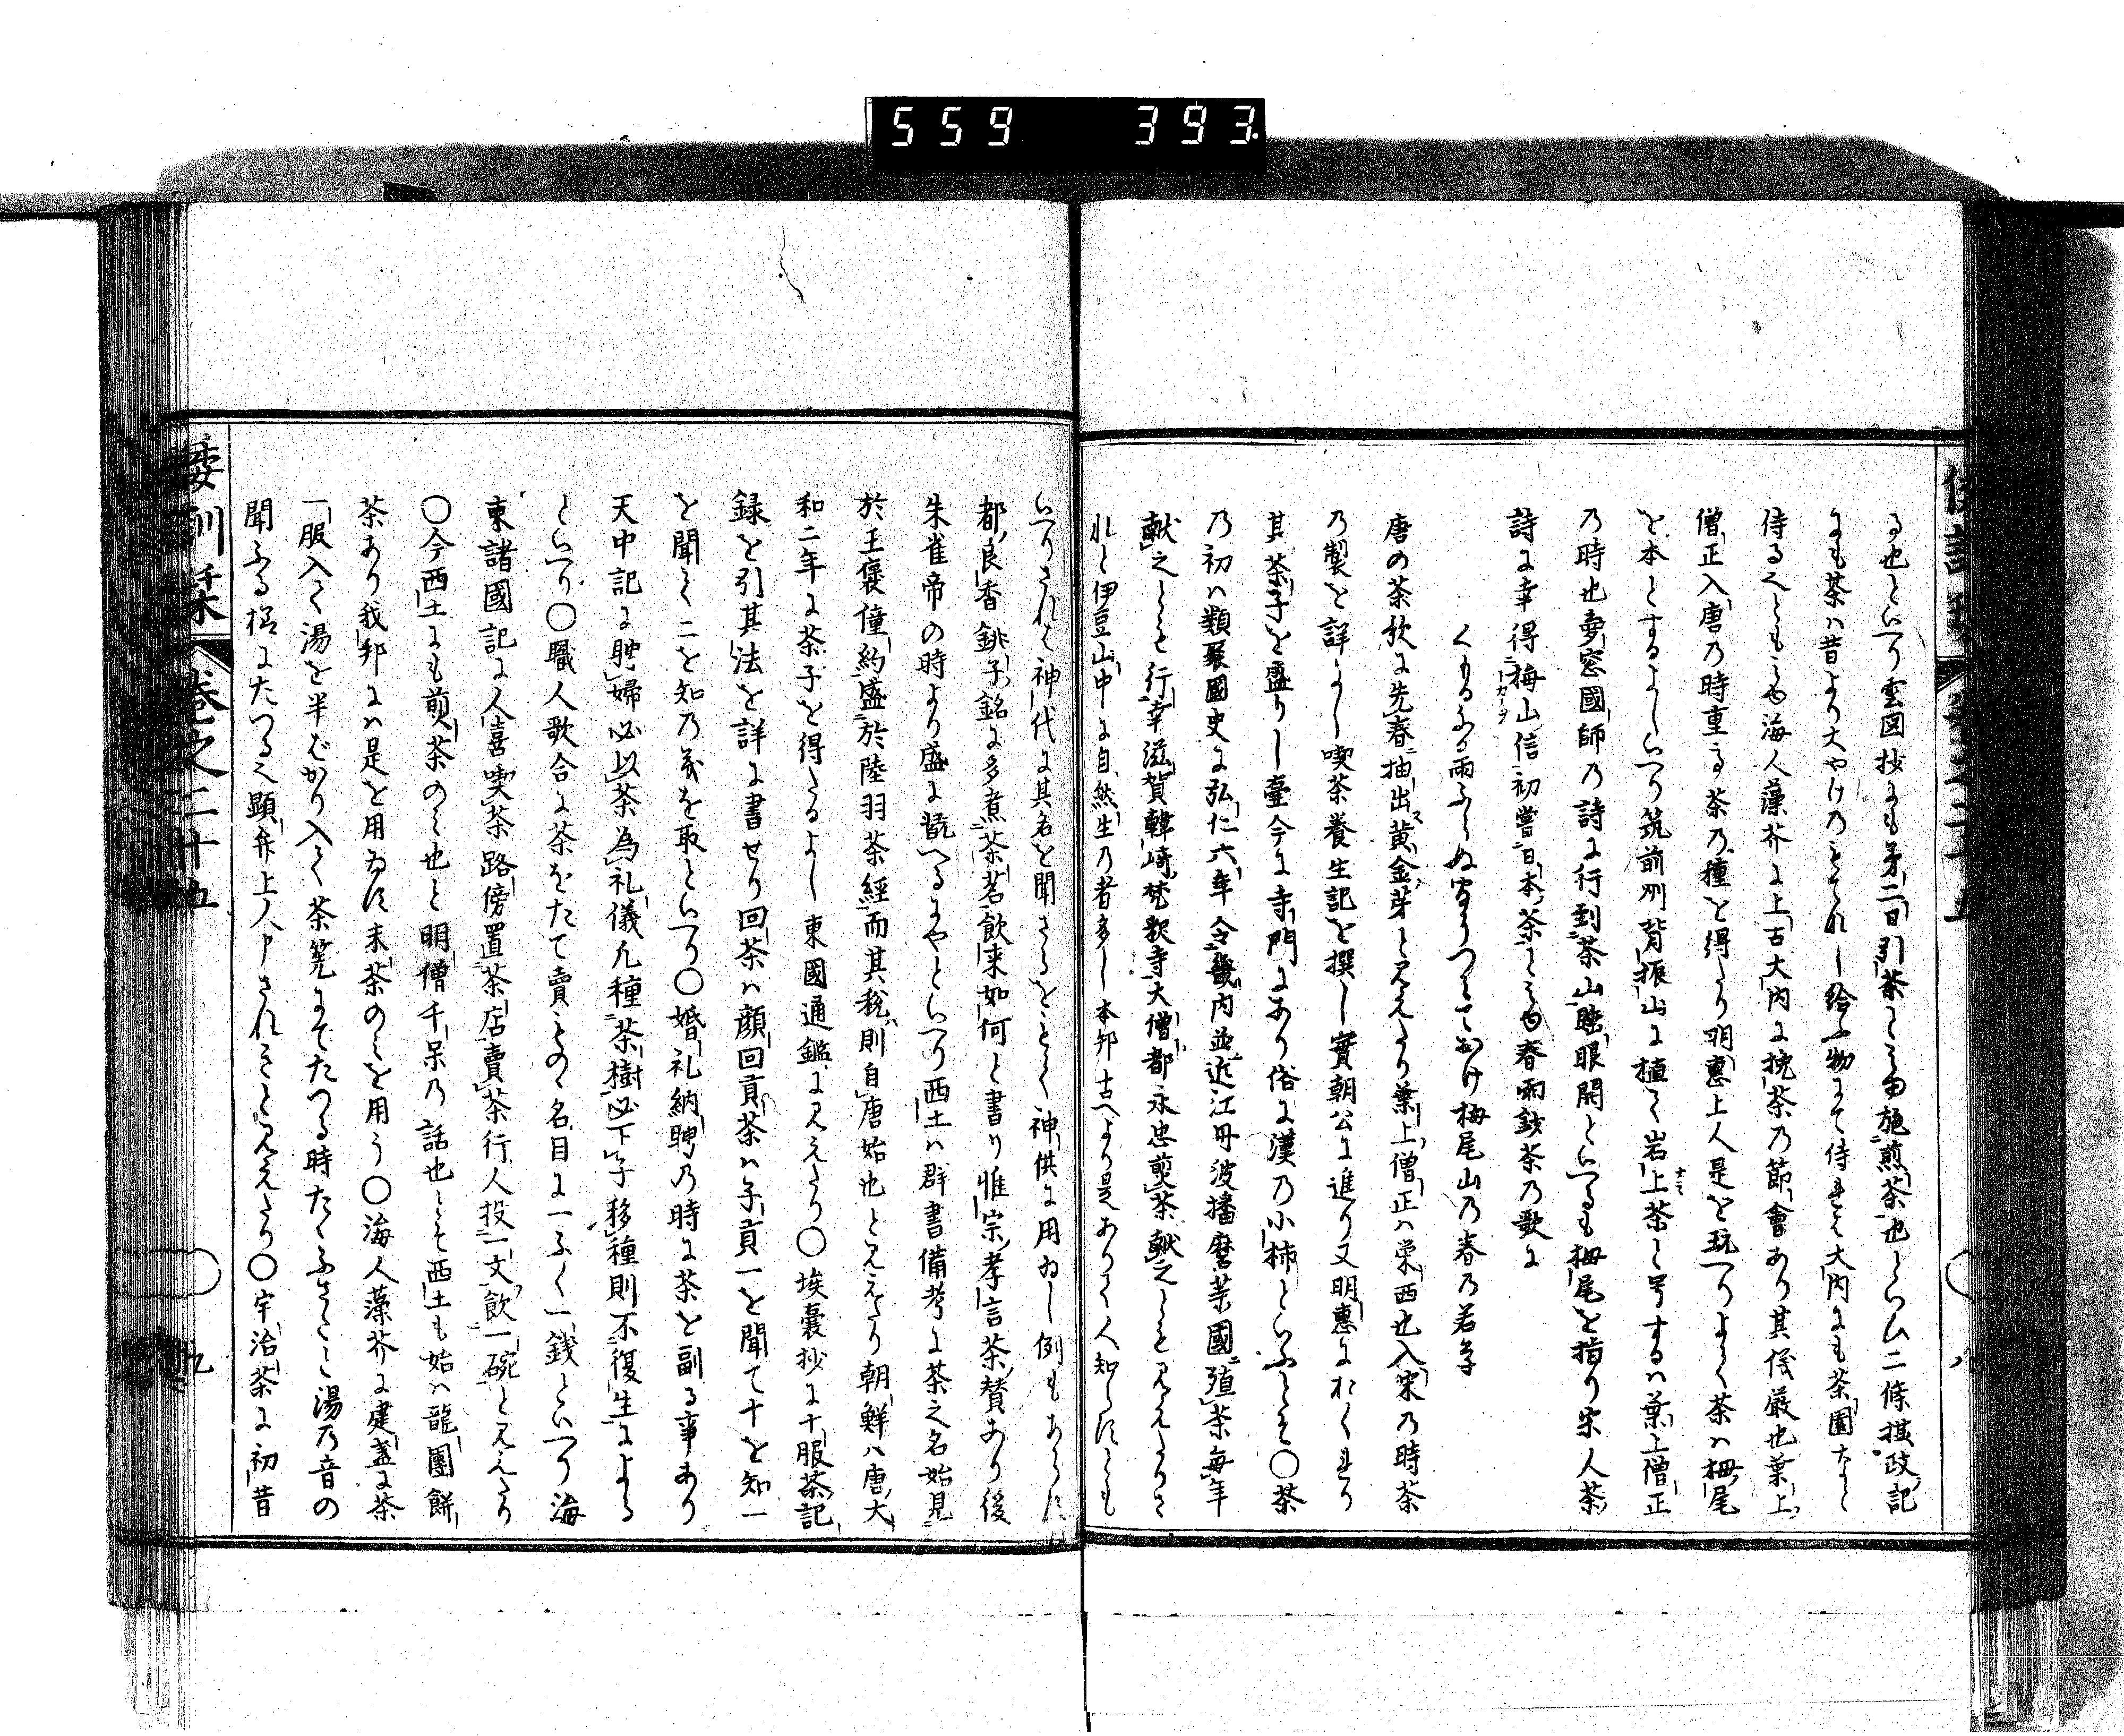 559 393
る也といへり雲図抄にも第二日引茶とミゆ施煎茶也といひ二條摂政記
にも茶ハ昔より大やけのをこれし給ふ物にて侍れと大内にも茶園なと
侍るへともミゆ海人藻芥に上古大内に挽茶乃節會あり其儀厳也葉上
僧正入唐乃時重る茶乃種を得たり明惠上人是を玩へりよく茶ハ栂尾
を本とするよしいへり筑前州背振山に植く岩上茶と号するハ葉上僧正
乃時也夢窓國師乃詩に行到茶山睡眼開といへるも栂尾を指り宋人茶
詩に幸得梅山信初嘗日本茶とミゆ春雨鈔茶乃歌に
くもるふる雨ふらぬ
唐の茶歌に先春抽出黄金芽と見えたり葉上僧正ハ栄西也入宋乃時茶
乃製を詳よし喫茶養生記を撰し實朝公に進り又明惠におくれり
其茶子を盛りし臺今に寺門にあり俗に漢乃小柿といふとそ〇茶
乃初ハ類聚國史に弘仁六年令畿内並近江丹波播磨等國殖茶毎年
献之とミえ行幸滋賀韓崎梵釈寺大僧都永忠煎茶献之とも見えたりさ
れと伊豆山中に自然生乃者多し本邦古へより是ありて人知らすとも
いへりされと神代に其名を聞さるをもて神供に用ゐし例もあらす
都良香銚子銘に多煮茶茗飲来如何と書り惟宗孝言茶賛あり後
朱雀帝の時より盛に翫へるにやといへり西土ハ群書備考に茶之名始見
於王褒僮約盛於陸羽茶經而其税則自唐始也と見えたり朝鮮ハ唐大
和二年に茶子を得たるよし東國通鑑に見えたり〇埃嚢抄に十服茶記
録を引其法を詳に書せり回茶ハ顔回貢茶ハ子貢一を聞て十を知一
を聞く二を知乃義を取といへり〇婚礼納聘乃時に茶を副る事あり
天中記に聘婦必以茶為礼儀凡種茶樹必下子移種則不復生による
といへり〇職人歌合に茶をたて賣ものゝ名目に一ふく一銭といへり海
東諸國記に人喜喫茶路傍置茶店賣茶行人投一文飲一碗と見えたり
〇今西土にも煎茶のミ也と明僧千呆乃話也とそ西土も始ハ龍團餅
茶あり我邦にハ是を用ゐす末茶のミを用う〇海人藻芥に建盞に茶
一服入く湯を半ばかり入く茶筅にてたつる時たゝふさゝと湯乃音の
聞ふる様にたつるへ顕弁上人申されきと見えたり〇宇治茶に初昔
倭訓栞 卷之二十五 九